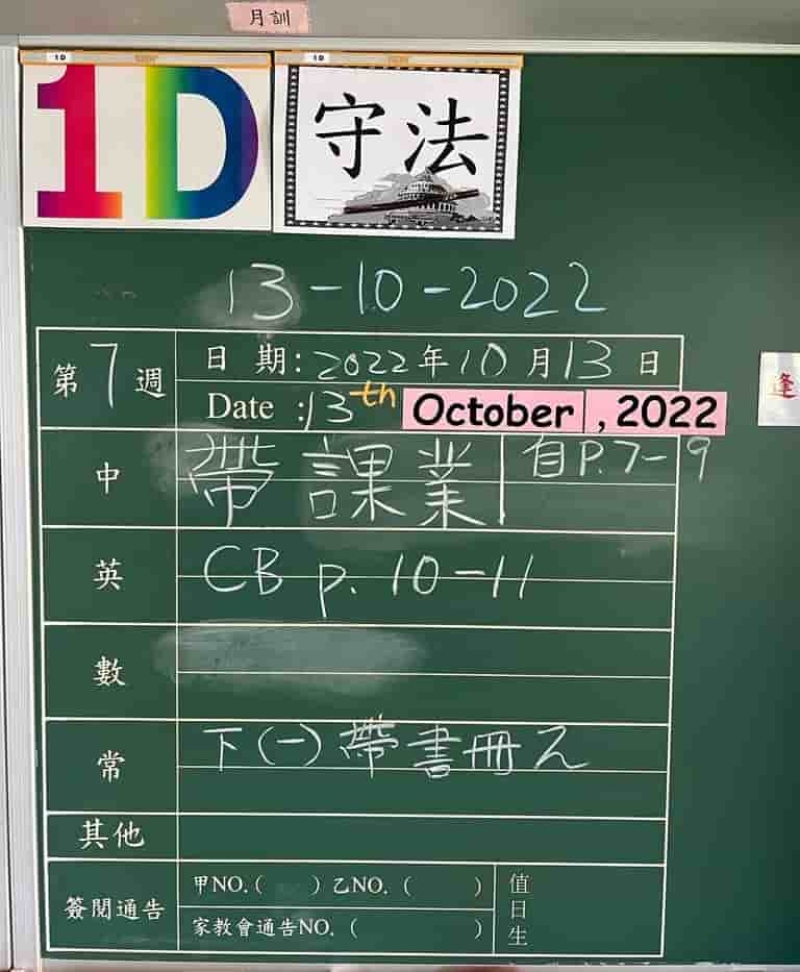 月訓
1D
守法
13-10-2022
第7週
日 期:2022年10月13日
Date :13th October , 2022
中
帶課業
自P.7-9
英
CB p. 10-11
數
常
下(一)帶書冊
其他
簽閱通告
甲NO.( )乙NO.( )
家教會通告NO.( )
值日生
逢